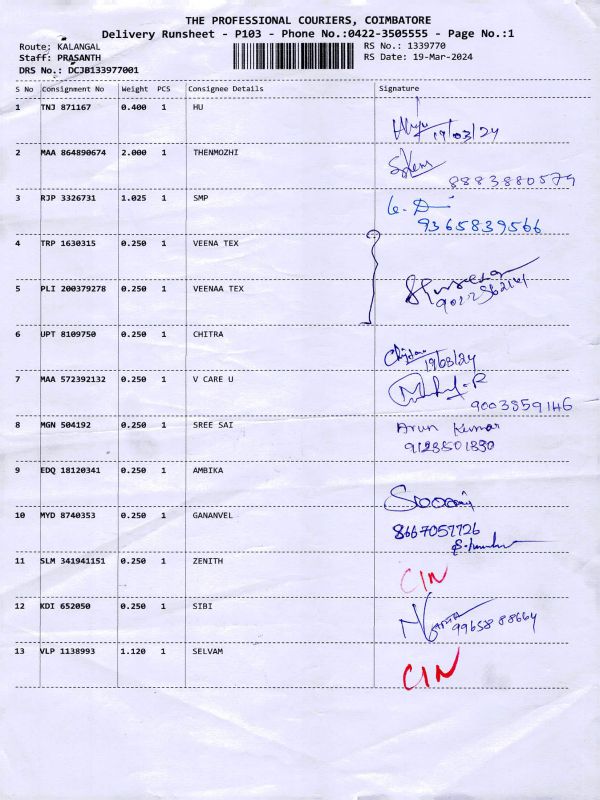 THE PROFESSIONAL COURIERS, COIMBATORE
Delivery Runsheet - P103 - Phone No.:0422-3505555 - Page No.:1
Route: KALANGAL
RS No.: 1339770
Staff: PRASANTH
RS Date: 19-Mar-2024
DRS No.: DCJB133977001
S No Consignment No Weight PCS Consignee Details Signature
1 TNJ 871167 0.400 1 HU
19/03/24
2 MAA 864890674 2.000 1 THENMOZHI
8883880579
3 RJP 3326731 1.025 1 SMP
9365839566
4 TRP 1630315 0.250 1 VEENA TEX
5 PLI 200379278 0.250 1 VEENAA TEX
6 UPT 8109750 0.250 1 CHITRA
19/03/24
7 MAA 572392132 0.250 1 V CARE U
9003859146
8 MGN 504192 0.250 1 SREE SAI Arun Kumar
9128501830
9 EDQ 18120341 0.250 1 AMBIKA
10 MYD 8740353 0.250 1 GANANVEL
8667057726
11 SLM 341941151 0.250 1 ZENITH
CIN
12 KDI 652050 0.250 1 SIBI
9965888664
13 VLP 1138993 1.120 1 SELVAM
CIN